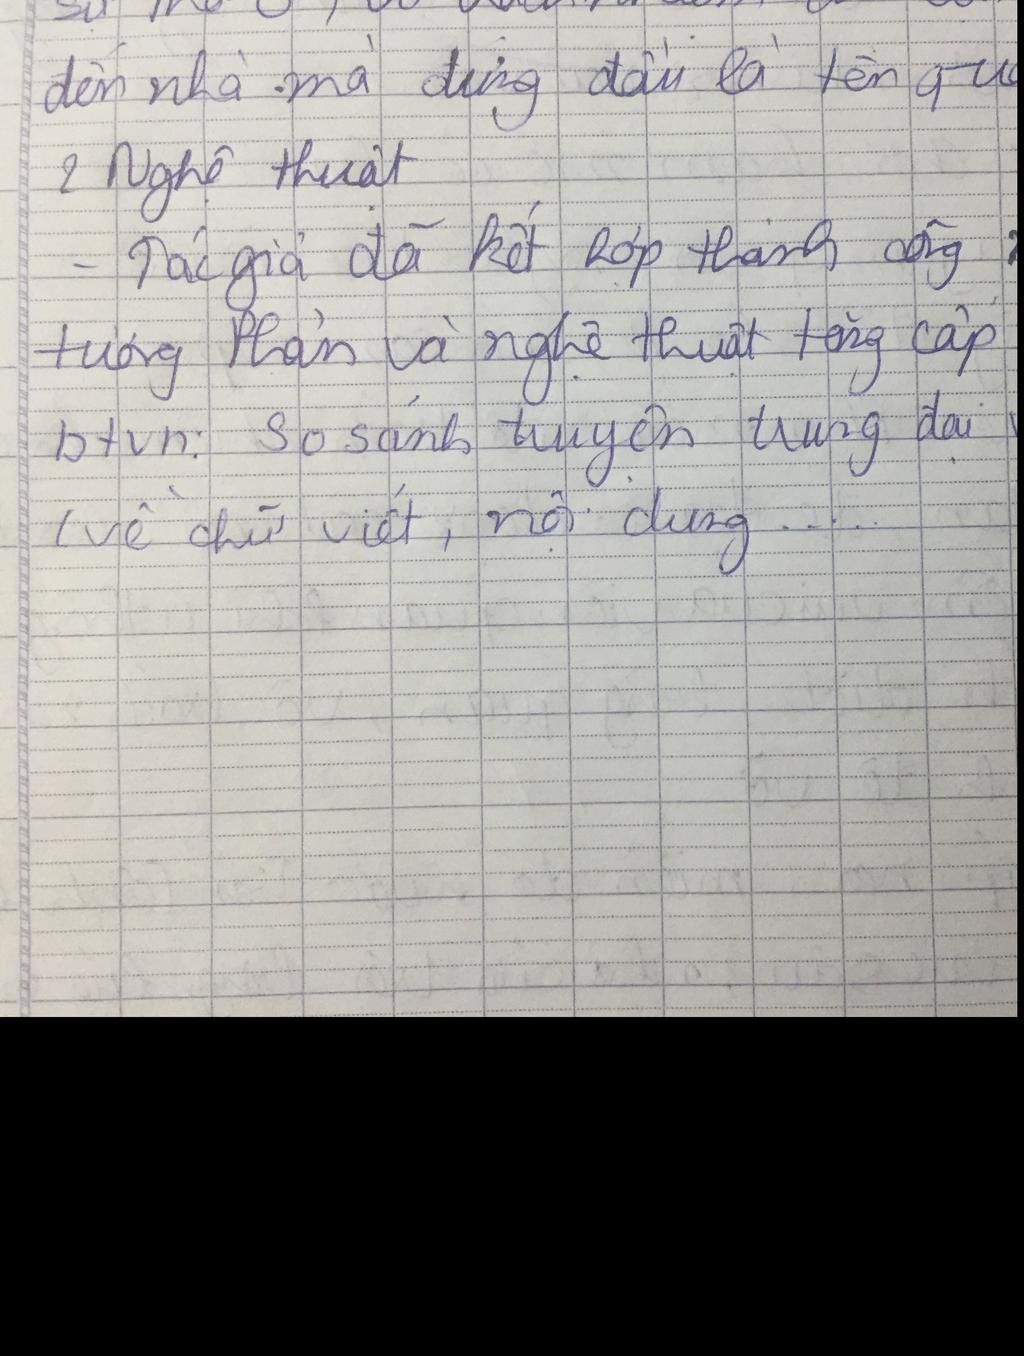 đến nhà mà đứng đầu là tên qu
2 Nghệ thuật
- Tác giả đã kết hợp thành công
tương Phản và nghệ thuật tăng cấp
btvn: So sánh truyện trung đại
(về chữ viết, nội dung .....